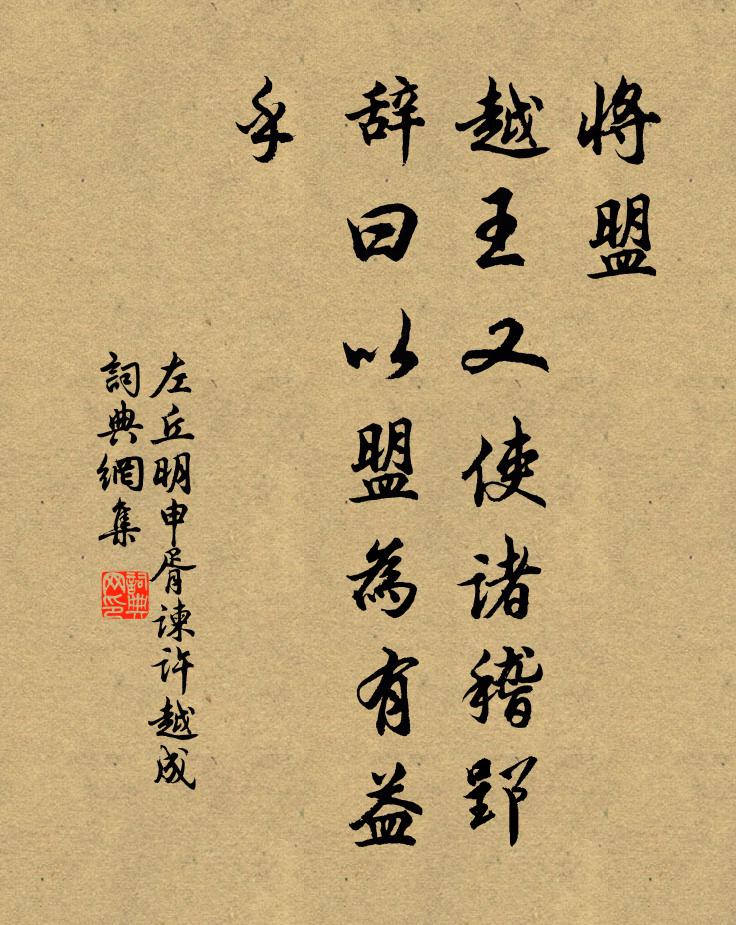 将盟
越王又使诸稽郢
辞曰以盟為有益
乎
左丘明申胥谏许越成
詞典網集
詞典网印